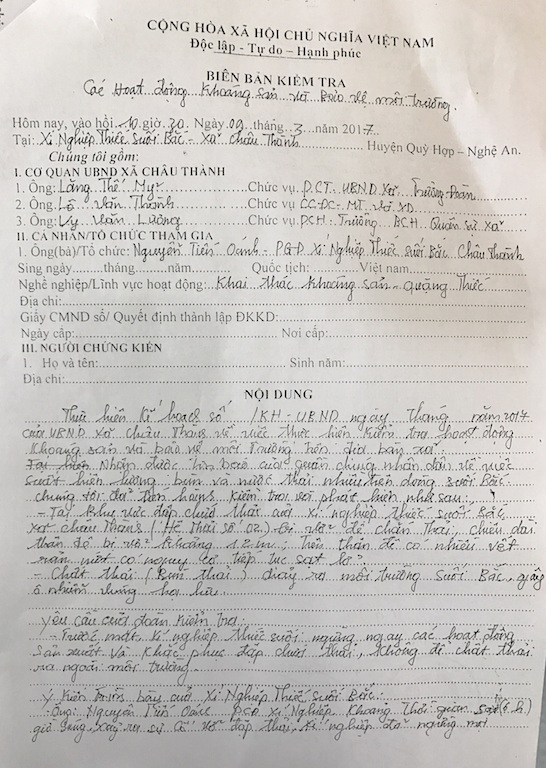 CỘNG HÒA XÃ HỘI CHỦ NGHĨA VIỆT NAM
Độc lập - Tự do – Hạnh phúc
BIÊN BẢN KIỂM TRA
Các Hoạt động Khoáng sản và Bảo vệ môi trường.
Hôm nay, vào hồi 10 giờ 30. Ngày 09 tháng 3 năm 2017
Tại: Xí Nghiệp Thiếc Suối Bắc - Xã Châu Thành Huyện Quỳ Hợp – Nghệ An.
Chúng tôi gồm:
I. CƠ QUAN UBND XÃ CHÂU THÀNH
1. Ông: Lăng Thế Mỹ Chức vụ P.CT - UBND xã Trưởng Đoàn
2. Ông: Lô Văn Thành Chức vụ CC-ĐC-MT và XD
3. Ông: Vy Văn Lương Chức vụ PCH-Trưởng BCH Quân sự xã
II. CÁ NHÂN/TỔ CHỨC THAM GIA
1. Ông(bà)/Tổ chức: Nguyễn Tiến Oánh - P.GĐ Xí Nghiệp Thiếc Suối Bắc Châu Thành
Sing ngày tháng năm Quốc tịch: Việt Nam
Nghề nghiệp/Lĩnh vực hoạt động: Khai thác khoáng sản - quặng Thiếc
Địa chỉ:
Giấy CMND số/ Quyết định thành lập ĐKKD:
Ngày cấp: Nơi cấp:
III. NGƯỜI CHỨNG KIẾN
1. Họ và tên: Sinh năm:
Địa chỉ:
NỘI DUNG
Thực hiện Kế hoạch số /KH-UBND ngày tháng năm 2017
của UBND xã Châu Thành về việc thực hiện kiểm tra hoạt động
Khoáng sản và bảo vệ môi trường trên địa bàn xã.
Nhận được tin báo của quần chúng nhân dân về việc
xuất hiện lượng bùn và nước thải nhiều trên dòng suối Bắc
chúng tôi đã tiến hành kiểm tra và phát hiện như sau:
- Tại khu vực đập chứa thải của xí nghiệp thiếc suối Bắc
xã Châu Thành (Hồ thải số 02) bị vỡ đê chắn thải, chiều dài
thân đê bị vỡ khoảng 12m; Trên thân đê có nhiều vết
rạn nứt có nguy cơ tiếp tục sạt lở
- Chất thải (Bùn thải) chảy ra môi trường Suối Bắc, gây
ô nhiễm vùng hạ lưu.
Yêu cầu của đoàn kiểm tra:
- Trước mắt, Xí nghiệp thiếc suối ngừng ngay các hoạt động
sản xuất và khắc phục đập chứa thải, không để chất thải
ra ngoài môi trường.
Ý kiến trình bày của Xí Nghiệp Thiếc Suối Bắc:
- Ông: Nguyễn Tiến Oánh P.GĐ Xí Nghiệp Khoảng Thời gian
giờ sáng, xảy ra sự cố vỡ đập thải, xí nghiệp đã ngừng mọi